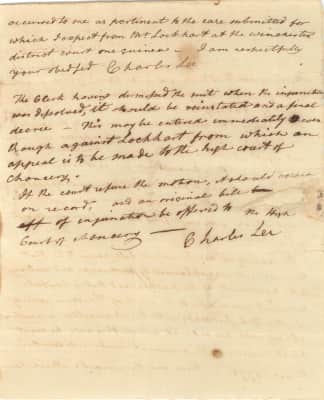 occurred to me as pertinent to the case submitted for
which I expect from Mr Lockhart at the winchester
district court one guinea — I am respectfully
your obed Ser Charles Lee
The Clerk having dismissed the suit when the injunction
was dissolved, it should be reinstated and a final
decree — This may be entered immediately even
though against Lockhart from which an
appeal is to be made to the high court of
Chancery.
If the court refuse the motion, it should
on record, and an original bill
of injunction be offered to the High
Court of Chancery —
Charles Lee